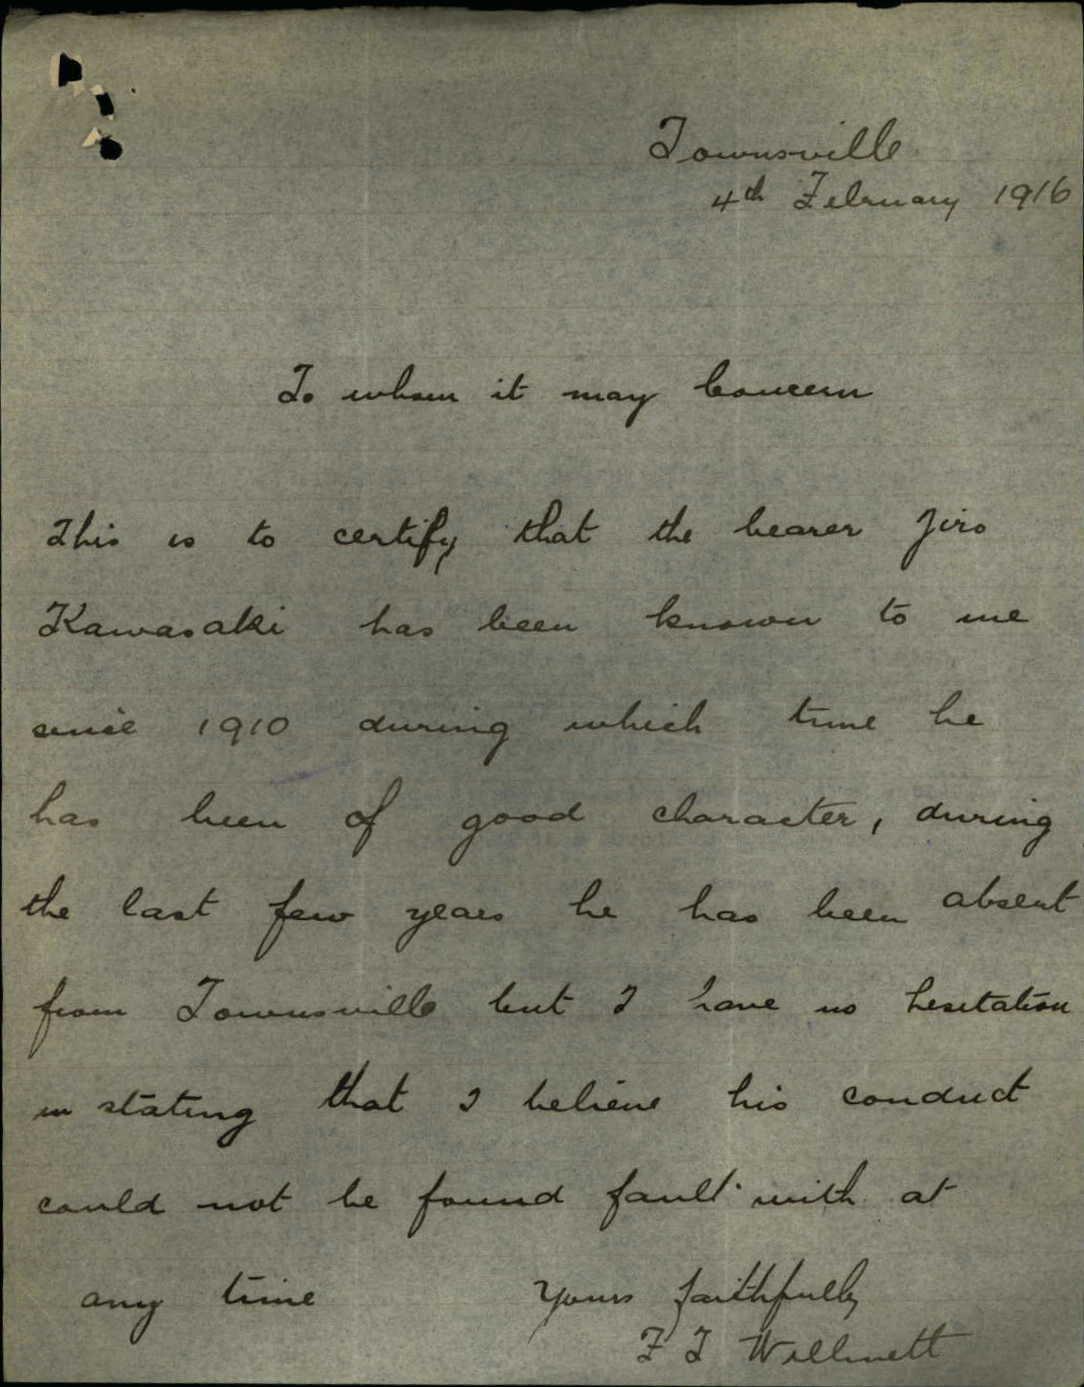 Townsville
4th February 1916
To whom it may Concern
This is to certify that the bearer Jiro
Kawasaki has been known to me
since 1910 during which time he
has been of good character, during
the last few years he has been absent
from Townsville but I have no hesitation
in stating that I believe his conduct
could not be found fault with at
any time Yours faithfully
F J Willmett